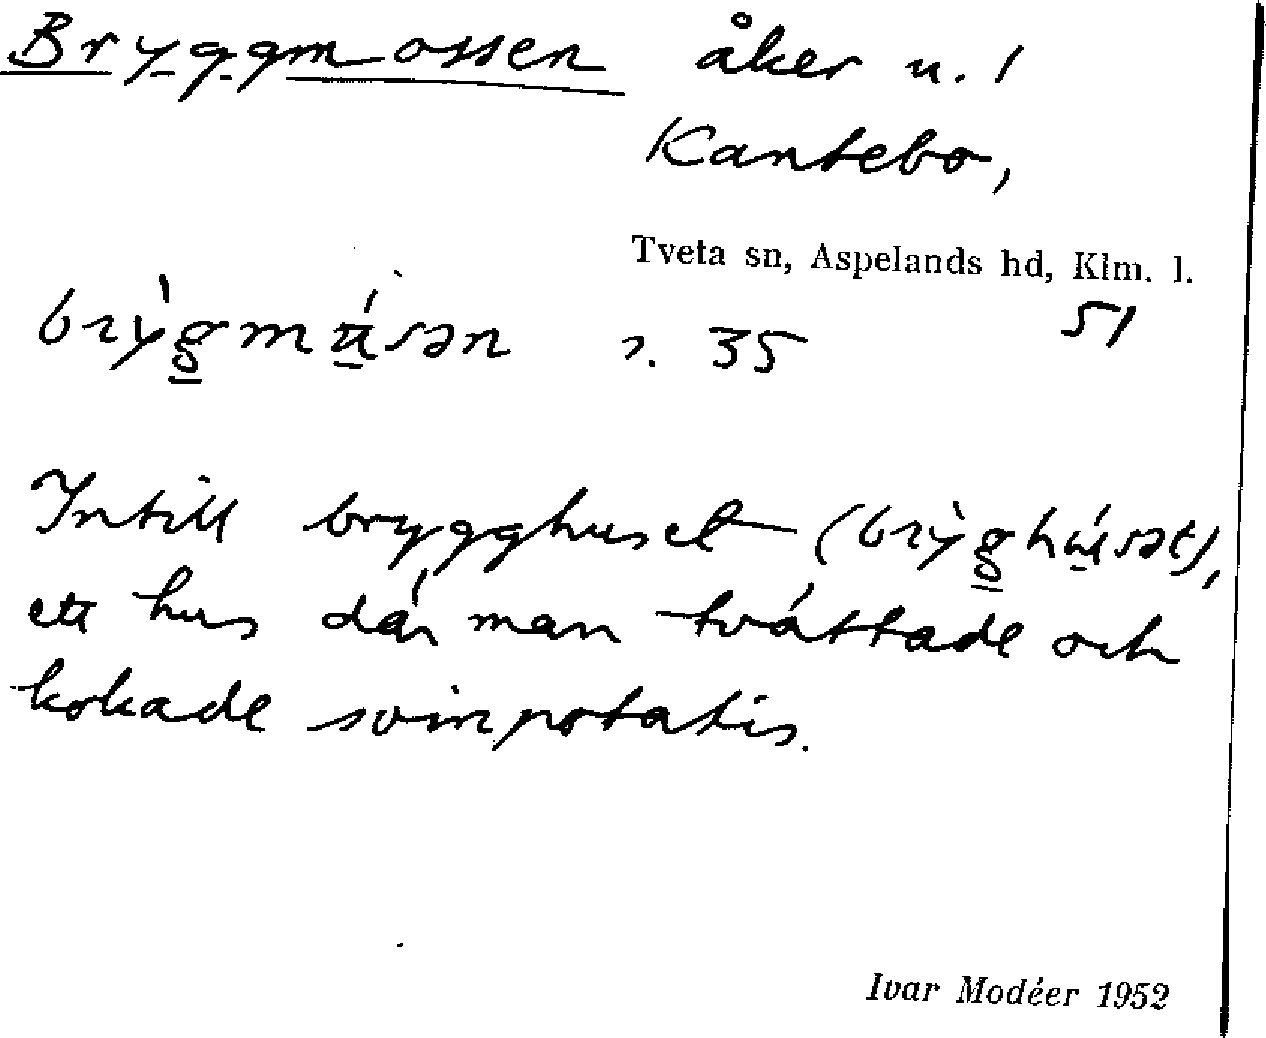 Bryggmossen åker n. 1
Kantebo,
Tveta sn, Aspelands hd, Klm. l.
s. 35 51
Intill brygghuset
ett hus där man tvättade och
kokade svinpotatis.
Ivar Modéer 1952